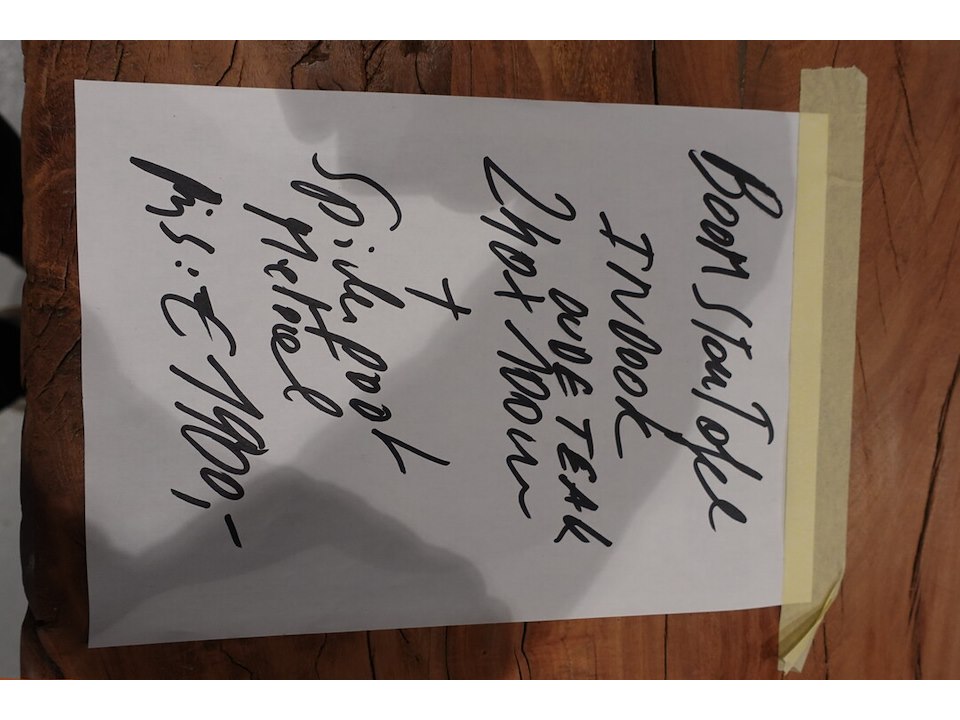 BoomstamTafel
INDOOR
OUDE TEAK
240 x 100 cm
+
Spinpoot
Metaal
Prijs: € 1900,-